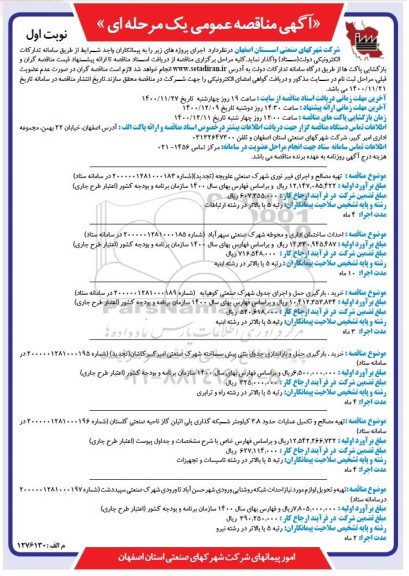 «آگهی مناقصه عمومی یک مرحله ای»
نوبت اول
شرکت شهرکهای صنعتی استان اصفهان درنظردارد اجرای پروژه های زیر را به پیمانکاران واجد شرایط از طریق سامانه تدارکات
الکترونیکی دولت(ستاد) واگذار نماید. کلیه مراحل برگزاری مناقصه از دریافت اسناد مناقصه تا ارائه پیشنهاد قیمت مناقصه گران و
بازگشایی پاکت ها از طریق درگاه سامانه تدارکات دولت به آدرس www.setadiran.ir انجام خواهد شد. لازم است مناقصه گران در صورت عدم عضویت
قبلی، مراحل ثبت نام در سایت مذکور و دریافت گواهی امضای الکترونیکی را جهت شرکت در مناقصه محقق سازند. تاریخ انتشار مناقصه در سامانه تاریخ
۱۴۰۰/۱۱/۲۱ می باشد.
آخرین مهلت زمانی دریافت اسناد مناقصه از سایت: ساعت ۱۹ روز چهارشنبه تاریخ ۱۴۰۰/۱۱/۲۷
آخرین مهلت زمانی ارائه پیشنهاد: ساعت ۱۴:۳۰ روز دوشنبه تاریخ ۱۴۰۰/۱۲/۰۹
زمان بازگشایی پاکت های مناقصه: ساعت ۱۳:۰۰ روز چهار شنبه تاریخ ۱۴۰۰/۱۲/۱۱
اطلاعات تماس دستگاه مناقصه گزار جهت دریافت اطلاعات بیشتر درخصوص اسناد مناقصه و ارائه پاکت الف: آدرس اصفهان، خیابان ۲۲ بهمن، مجموعه
اداری امیر کبیر، شرکت شهرکهای صنعتی استان اصفهان و تلفن ۰۳۱۳۲۶۴۷۳۰۰
اطلاعات تماس سامانه ستاد جهت انجام مراحل عضویت در سامانه: مرکز تماس ۱۴۵۶-۰۲۱
هزینه درج آگهی روزنامه به عهده برنده مناقصه می باشد.
موضوع مناقصه: تهیه مصالح و اجرای فیبر نوری شهرک صنعتی علویجه (تجدید)(شماره ۲۰۰۰۰۰۱۲۸۱۰۰۰۱۸۳ در سامانه ستاد)
مبلغ برآورد اولیه: ۱۲,۱۴۷,۰۸۵,۴۲۲ ریال و براساس فهارس بهای سال ۱۴۰۰ سازمان برنامه و بودجه کشور (اعتبار طرح جاری)
مبلغ تضمین شرکت در فرآیند ارجاع کار: ۶۰۷,۳۵۵,۰۰۰ ریال
رشته و پایه تشخیص صلاحیت پیمانکاران: رتبه ۵ یا بالاتر در رشته ارتباطات
مدت اجرا: ۴ ماه
موضوع مناقصه: احداث ساختمان اداری و محوطه شهرک صنعتی سپهرآباد (شماره ۲۰۰۰۰۰۱۲۸۱۰۰۰۱۸۵ در سامانه ستاد)
مبلغ برآورد اولیه: ۱۴,۳۳۰,۹۴۵,۴۸۷ ریال و براساس فهارس بهای سال ۱۴۰۰ سازمان برنامه و بودجه کشور (اعتبار طرح جاری)
مبلغ تضمین شرکت در فرآیند ارجاع کار: ۷۱۶,۵۴۸,۰۰۰ ریال
رشته و پایه تشخیص صلاحیت پیمانکاران: رتبه ۵ یا بالاتر در رشته ابنیه
مدت اجرا: ۱۰ ماه
موضوع مناقصه: خرید، بارگیری حمل و اجرای جدول شهرک صنعتی کوهپایه (شماره ۲۰۰۰۰۰۱۲۸۱۰۰۰۱۸۹ در سامانه ستاد)
مبلغ برآورد اولیه: ۱۰,۴۱۲,۳۵۳,۸۳۴ ریال و براساس فهارس بهای سال ۱۴۰۰ سازمان برنامه و بودجه کشور (اعتبار طرح جاری)
مبلغ تضمین شرکت در فرآیند ارجاع کار: ۵۲۰,۶۱۸,۰۰۰ ریال
رشته و پایه تشخیص صلاحیت پیمانکاران: رتبه ۵ یا بالاتر در رشته ابنیه
مدت اجرا: ۳ ماه
موضوع مناقصه: خرید، بارگیری حمل و باراندازی جدول بتنی پیش ساخته شهرک صنعتی امیرکبیر کاشان(تجدید) (شماره ۲۰۰۰۰۰۱۲۸۱۰۰۰۱۹۵ در
سامانه ستاد)
مبلغ برآورد اولیه: ۶,۵۰۰,۰۰۰,۰۰۰ ریال و براساس فهارس بهای سال ۱۴۰۰ سازمان برنامه و بودجه کشور (اعتبار طرح جاری)
مبلغ تضمین شرکت در فرآیند ارجاع کار: ۳۲۵,۰۰۰,۰۰۰ ریال
رشته و پایه تشخیص صلاحیت پیمانکاران: رتبه ۵ یا بالاتر در رشته راه و ترابری
مدت اجرا: ۲ ماه
موضوع مناقصه: تهیه مصالح و تکمیل عملیات حدود ۳.۸ کیلومتر شبکه گذاری پلی اتیلن گاز ناحیه صنعتی گلستان (شماره ۲۰۰۰۰۰۱۲۸۱۰۰۰۱۹۶ در
سامانه ستاد)
مبلغ برآورد اولیه: ۱۲,۵۴۲,۲۶۶,۷۳۲ ریال و براساس فهارس خاص با شرح مشخصات و جداول پیوست (اعتبار طرح جاری)
مبلغ تضمین شرکت در فرآیند ارجاع کار: ۶۲۷,۱۱۴,۰۰۰ ریال
رشته و پایه تشخیص صلاحیت پیمانکاران: رتبه ۵ یا بالاتر در رشته تاسیسات و تجهیزات
مدت اجرا: ۴ ماه
موضوع مناقصه: تهیه و تحویل لوازم مورد نیاز احداث شبکه روشنایی ورودی شهر حسن آباد تا ورودی شهرک صنعتی سپیددشت (شماره ۲۰۰۰۰۰۱۲۸۱۰۰۰۱۹۷
در سامانه ستاد)
مبلغ برآورد اولیه: ۷,۸۰۵,۰۰۰,۰۰۰ ریال و فهارس بهای سال ۱۴۰۰ سازمان برنامه و بودجه کشور (اعتبار طرح جاری)
مبلغ تضمین شرکت در فرآیند ارجاع کار: ۳۹۰,۲۵۰,۰۰۰ ریال
رشته و پایه تشخیص صلاحیت پیمانکاران: رتبه ۵ یا بالاتر در رشته نیرو
مدت اجرا: ۲ ماه
م الف: ۱۲۷۶۱۳۰
امور پیمانهای شرکت شهرکهای صنعتی استان اصفهان